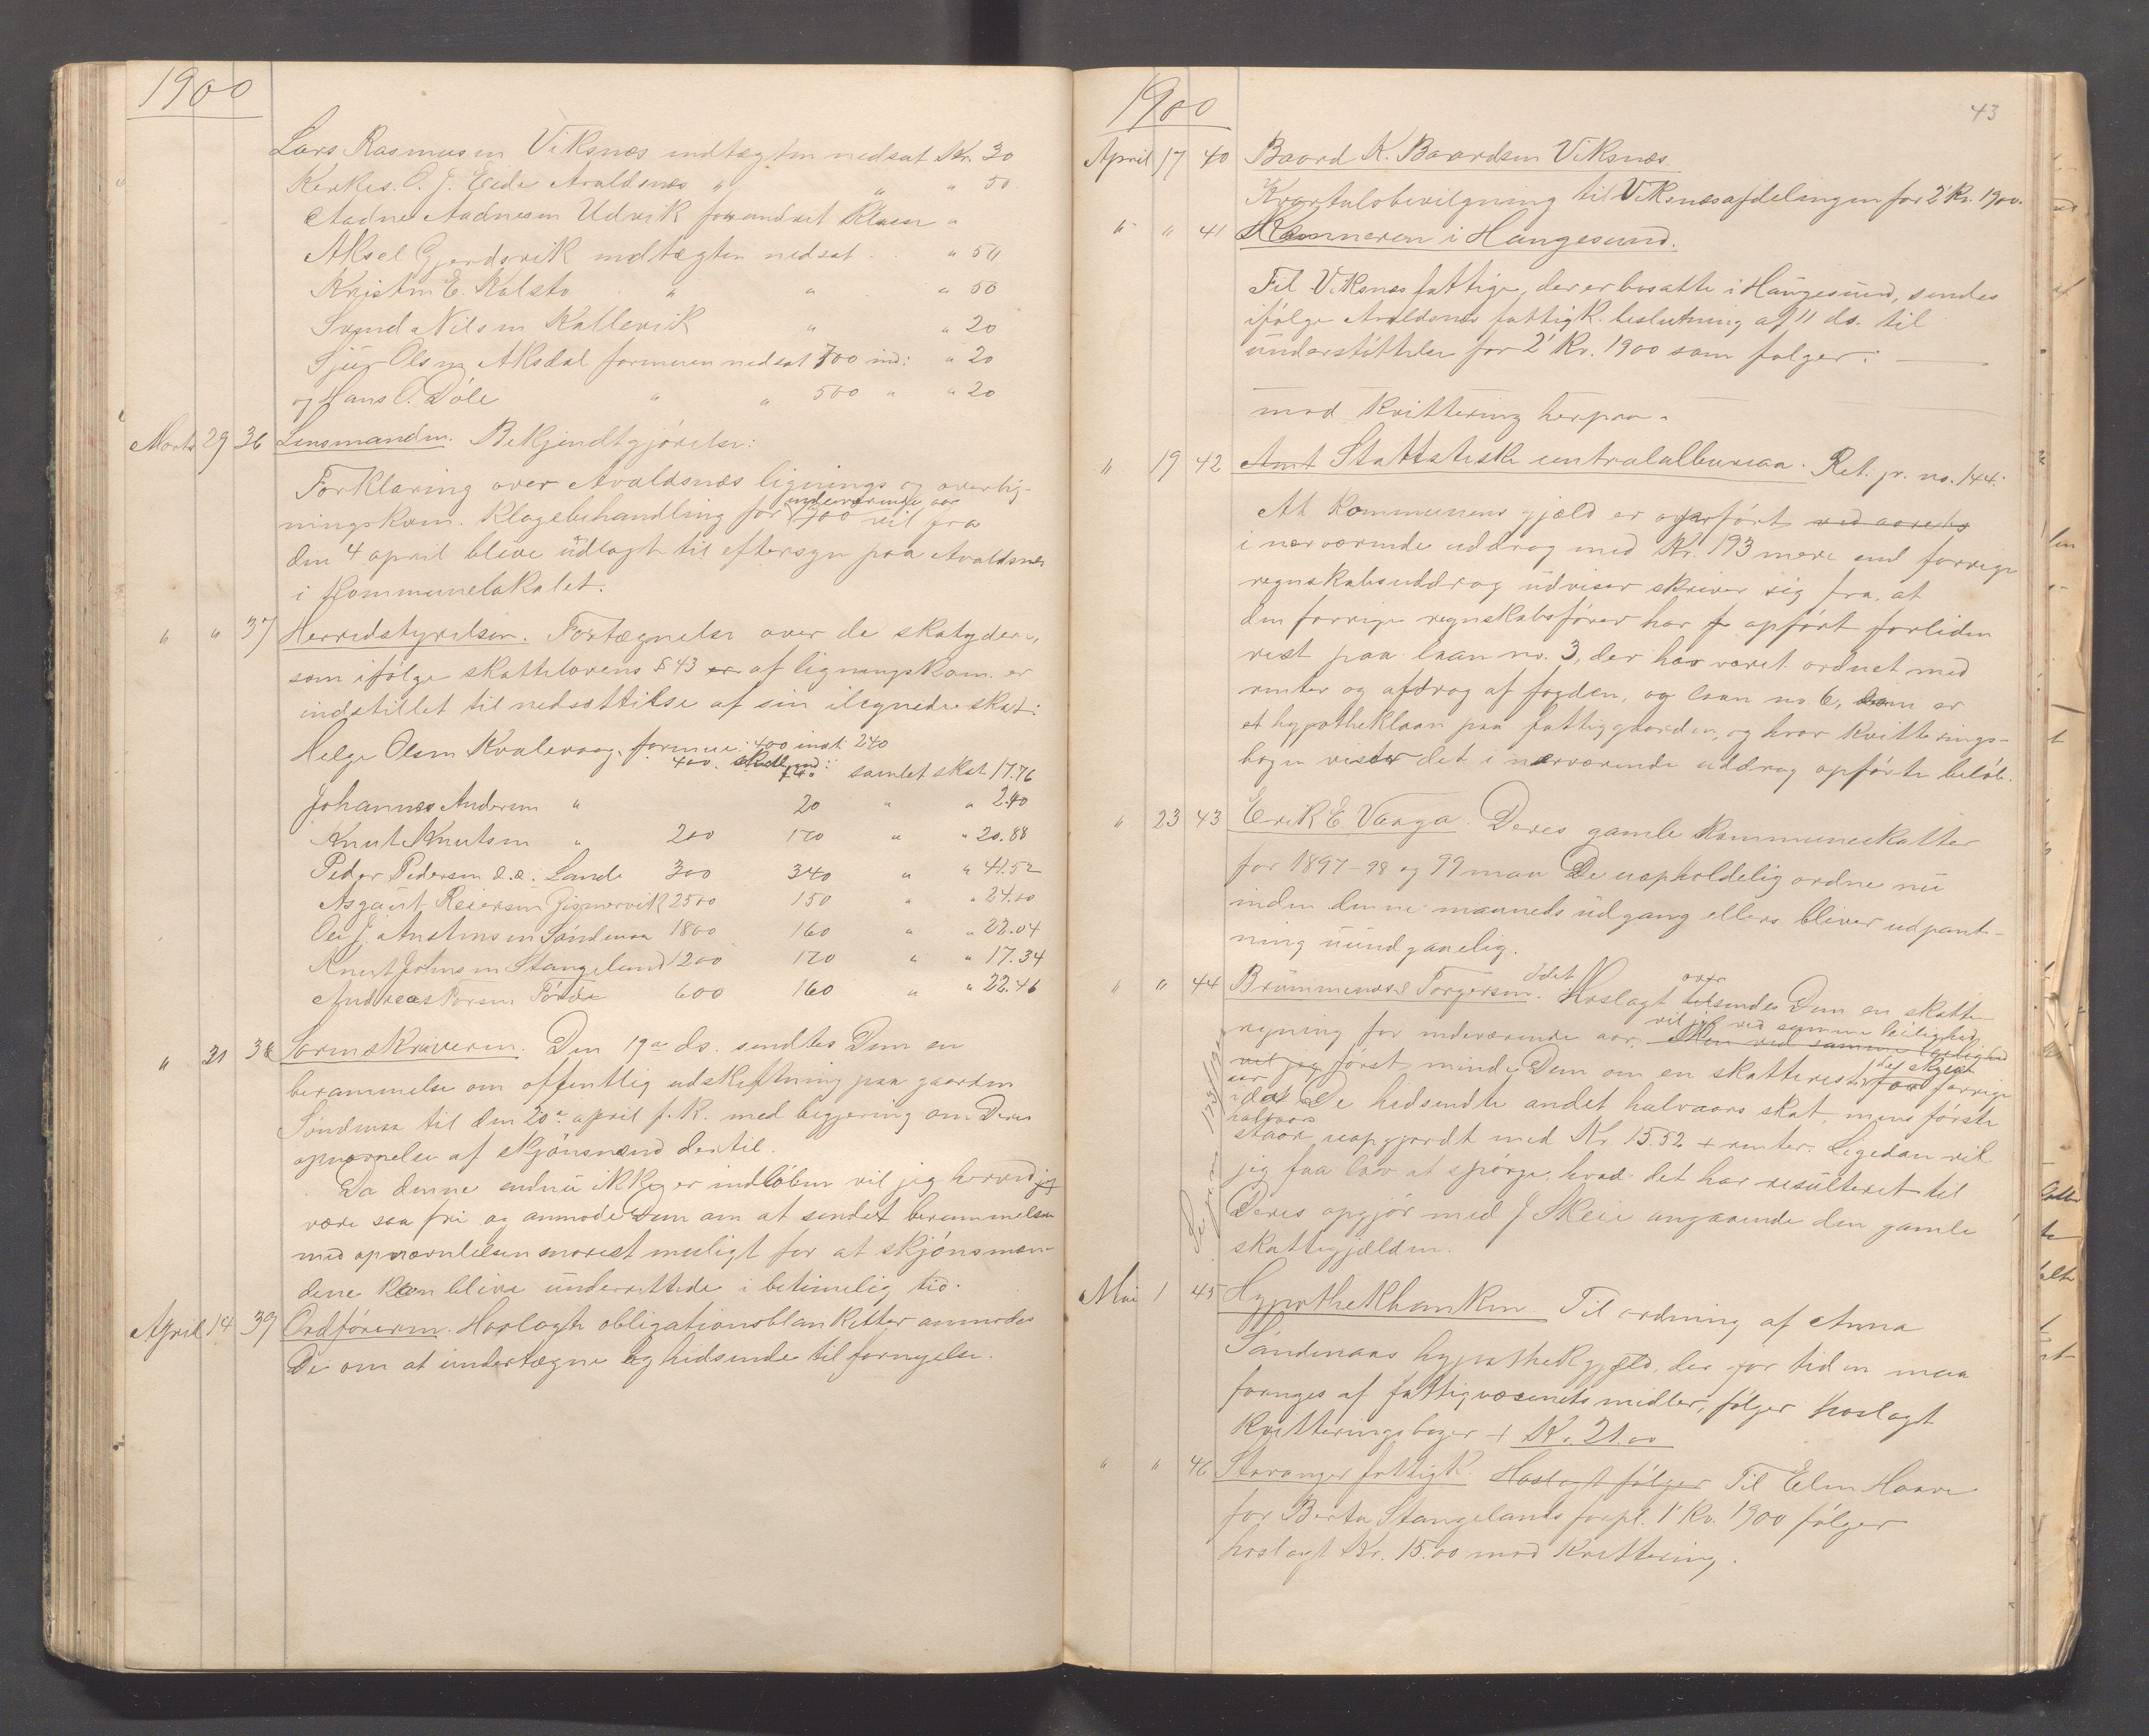 1900
Lars Rasmusen Viksnes indtægten nedsat Kr. 30
Kirkes. O. J. Eide Avaldsnes " " " 50
Aadne Aadnesen Udvik forandret Klasse "
Aksel Gjerdsvik indtægten nedsat . . " 50
Kristen E. Kolstø " " " 50
Svend Nilsen Kallevik " " 20
Sjur Olsen Aksdal formuen nedsat 700 ind: " 20
og Hans O. Døle " " 500 " " 20
Marts 29 36 Lensmanden. Bekjendtgjørelse:
Forklaring over Avaldsnes lignings og overlig-
ningskom. Klagebehandling for indeværende aar 1900 vil fra
den 4 april blive udlagt til eftersyn paa Avaldsnes
i Kommunelokalet.
" " 37 Herredstyrelsen. Fortegnelse over de skatydere,
som ifølge skattelovens § 43 er af ligningskom. er
indstillet til nedsættelse af sin ilignede skat:
Helge Olsen Kvalevaag, formue: 400 indt 240
400. samlet skat 17.76
Johannes Andersen " 20 " " 2.40
Knut Knutsen " 200 170 " " 20.88
Peder Pedersen d.æ. Lande 300 340 " " 41.52
Asgaut Reiersen Gismervik 2500 150 " " 24.00
Ole J. Austinsen Søndenaa 1800 160 " " 22.04
Knut Johnsen Stangeland 1200 170 " " 17.34
Andreas Torsen 600 160 " " 22.46
" 31 38 Sorenskriveren. Den 19de ds. sendtes Dem en
berammelse om offentlig udskiftning paa gaarden
Søndenaa til den 20de april f. K. med begjering om Deres
opnævnelse af skjønsmænd dertil.
Da denne endnu ikke er indløben vil jeg herved
være saa fri og anmode Dem om at sende berammelsen
med opnævnelsen snarest muligt for at skjønsmæn-
dene kan blive underrettede i betimelig tid.
April 14 39 Ordføreren. Hoslagte obligationsblanketter anmodes
De om at undertegne og hidsende til fornyelse.
1900 43
April 17 40 Baard K. Baardsen Viksnes.
Kvartalsbevilgning til Viksnesafdelingen for 2' Kv. 1900.
" " 41 Kæmneren i Haugesund.
Til Viksnes fattige, der er bosatte i Haugesund, sendes
ifølge Avaldsnes fattigk. beslutning af 11 ds. til
understøttelse for 2' Kv. 1900 som følger:
mod kvittering herpaa.
" 19 42 Amt Stattstiske centralbureau. Ret. jr. no. 144.
At Kommunens gjæld er opført ved aarets
i nærværende uddrag med Kr. 193 mere end forrige
regnskabsuddrag udviser skriver sig fra, at
den forrige regnskabsfører har opført forliden
rest paa laan no. 3, der har været ordnet med
renter og afdrag af fogden, og laan no 6, som er
et hypotheklaan paa fattiggaarden, og hvor kvitterings-
bogen viser det i nærværende uddrag opførte beløb.
" 23 43 Erik E. Vaaga. Deres gamle kommuneskatter
for 1897-98 og 99 maa De uopholdelig ordne nu
inden denne maaneds udgang ellers bliver udpant-
ning uundgaaelig.
" " 44 Brummenæs & Torgersen. Idet Hoslagt over tilsendes Dem en skatte-
regning for indeværende aar, vil jeg ved samme leilighed Men ved samme leilighed
vil jeg først minde Dem om en skatterest for forrige
aar idet De hidsendte andet halvaars skat, mens første
halvaars staar uopgjordt med Kr. 15.52 + renter. Ligedan vil
jeg faa lov at spørge, hvad det har resulteret til
Deres opgjør med J. Skeie angaaende den gamle
skattegjælden.
Mai 1 45 Hypothekbanken. Til ordning af Anna
Søndenaas hypothekgjæld, der for tiden maa
forrges af fattigvæsenets midler, følger hoslagt
Kvitteringsbøger + Kr. 21.00
" " 46 Stavanger fattigk. Hoslagt følger Til Elen Haave
for Berta Stangelands forpl. 1' Kv. 1900 følger
hoslagt Kr. 15.00 mod Kvittering.